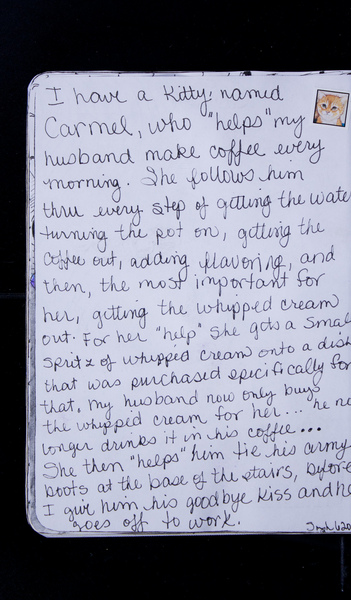 I have a Kitty, named
Carmel, who "helps" my
husband make coffee every
morning. She follows him
thru every step of getting the wate
turning the pot on, getting the
coffee out, adding flavoring, and
then, the most important for
her, getting the whipped cream
out. For her "help" she gets a small
spritz of whipped cream onto a dish
that was purchased specifically for
that. My husband now only buys
the whipped cream for her... he no
longer drinks it in his coffee...
She then "helps" him tie his army
boots at the base of the stairs, before
I give him his goodbye kiss and he
goes off to work.